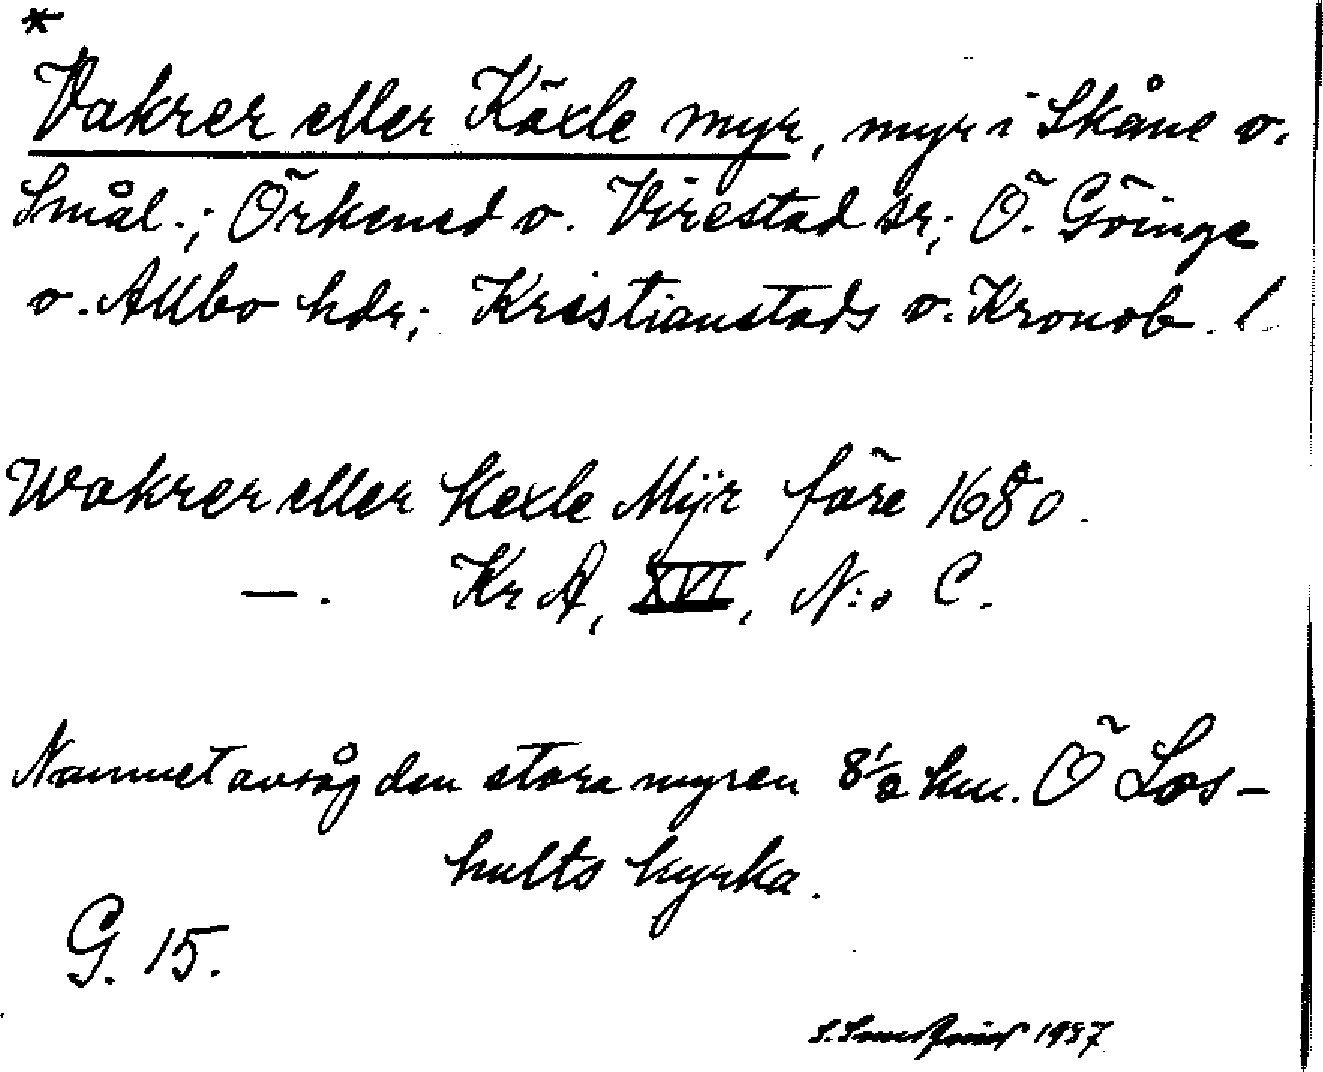 *
Vakrer eller Käxle myr, myr i Skåne o.
Smål.; Örkened o. Virestad sr; Ö. Göinge
o. Allbo hdr; Kristianstads o. Kronob. l
Wakrer eller Kexle Mÿr före 1680.
—. KrA, XVI, N:o C.
Namnet avsåg den stora myren 8 1/2 km. Ö Los-
hults kyrka.
G. 15.
1937